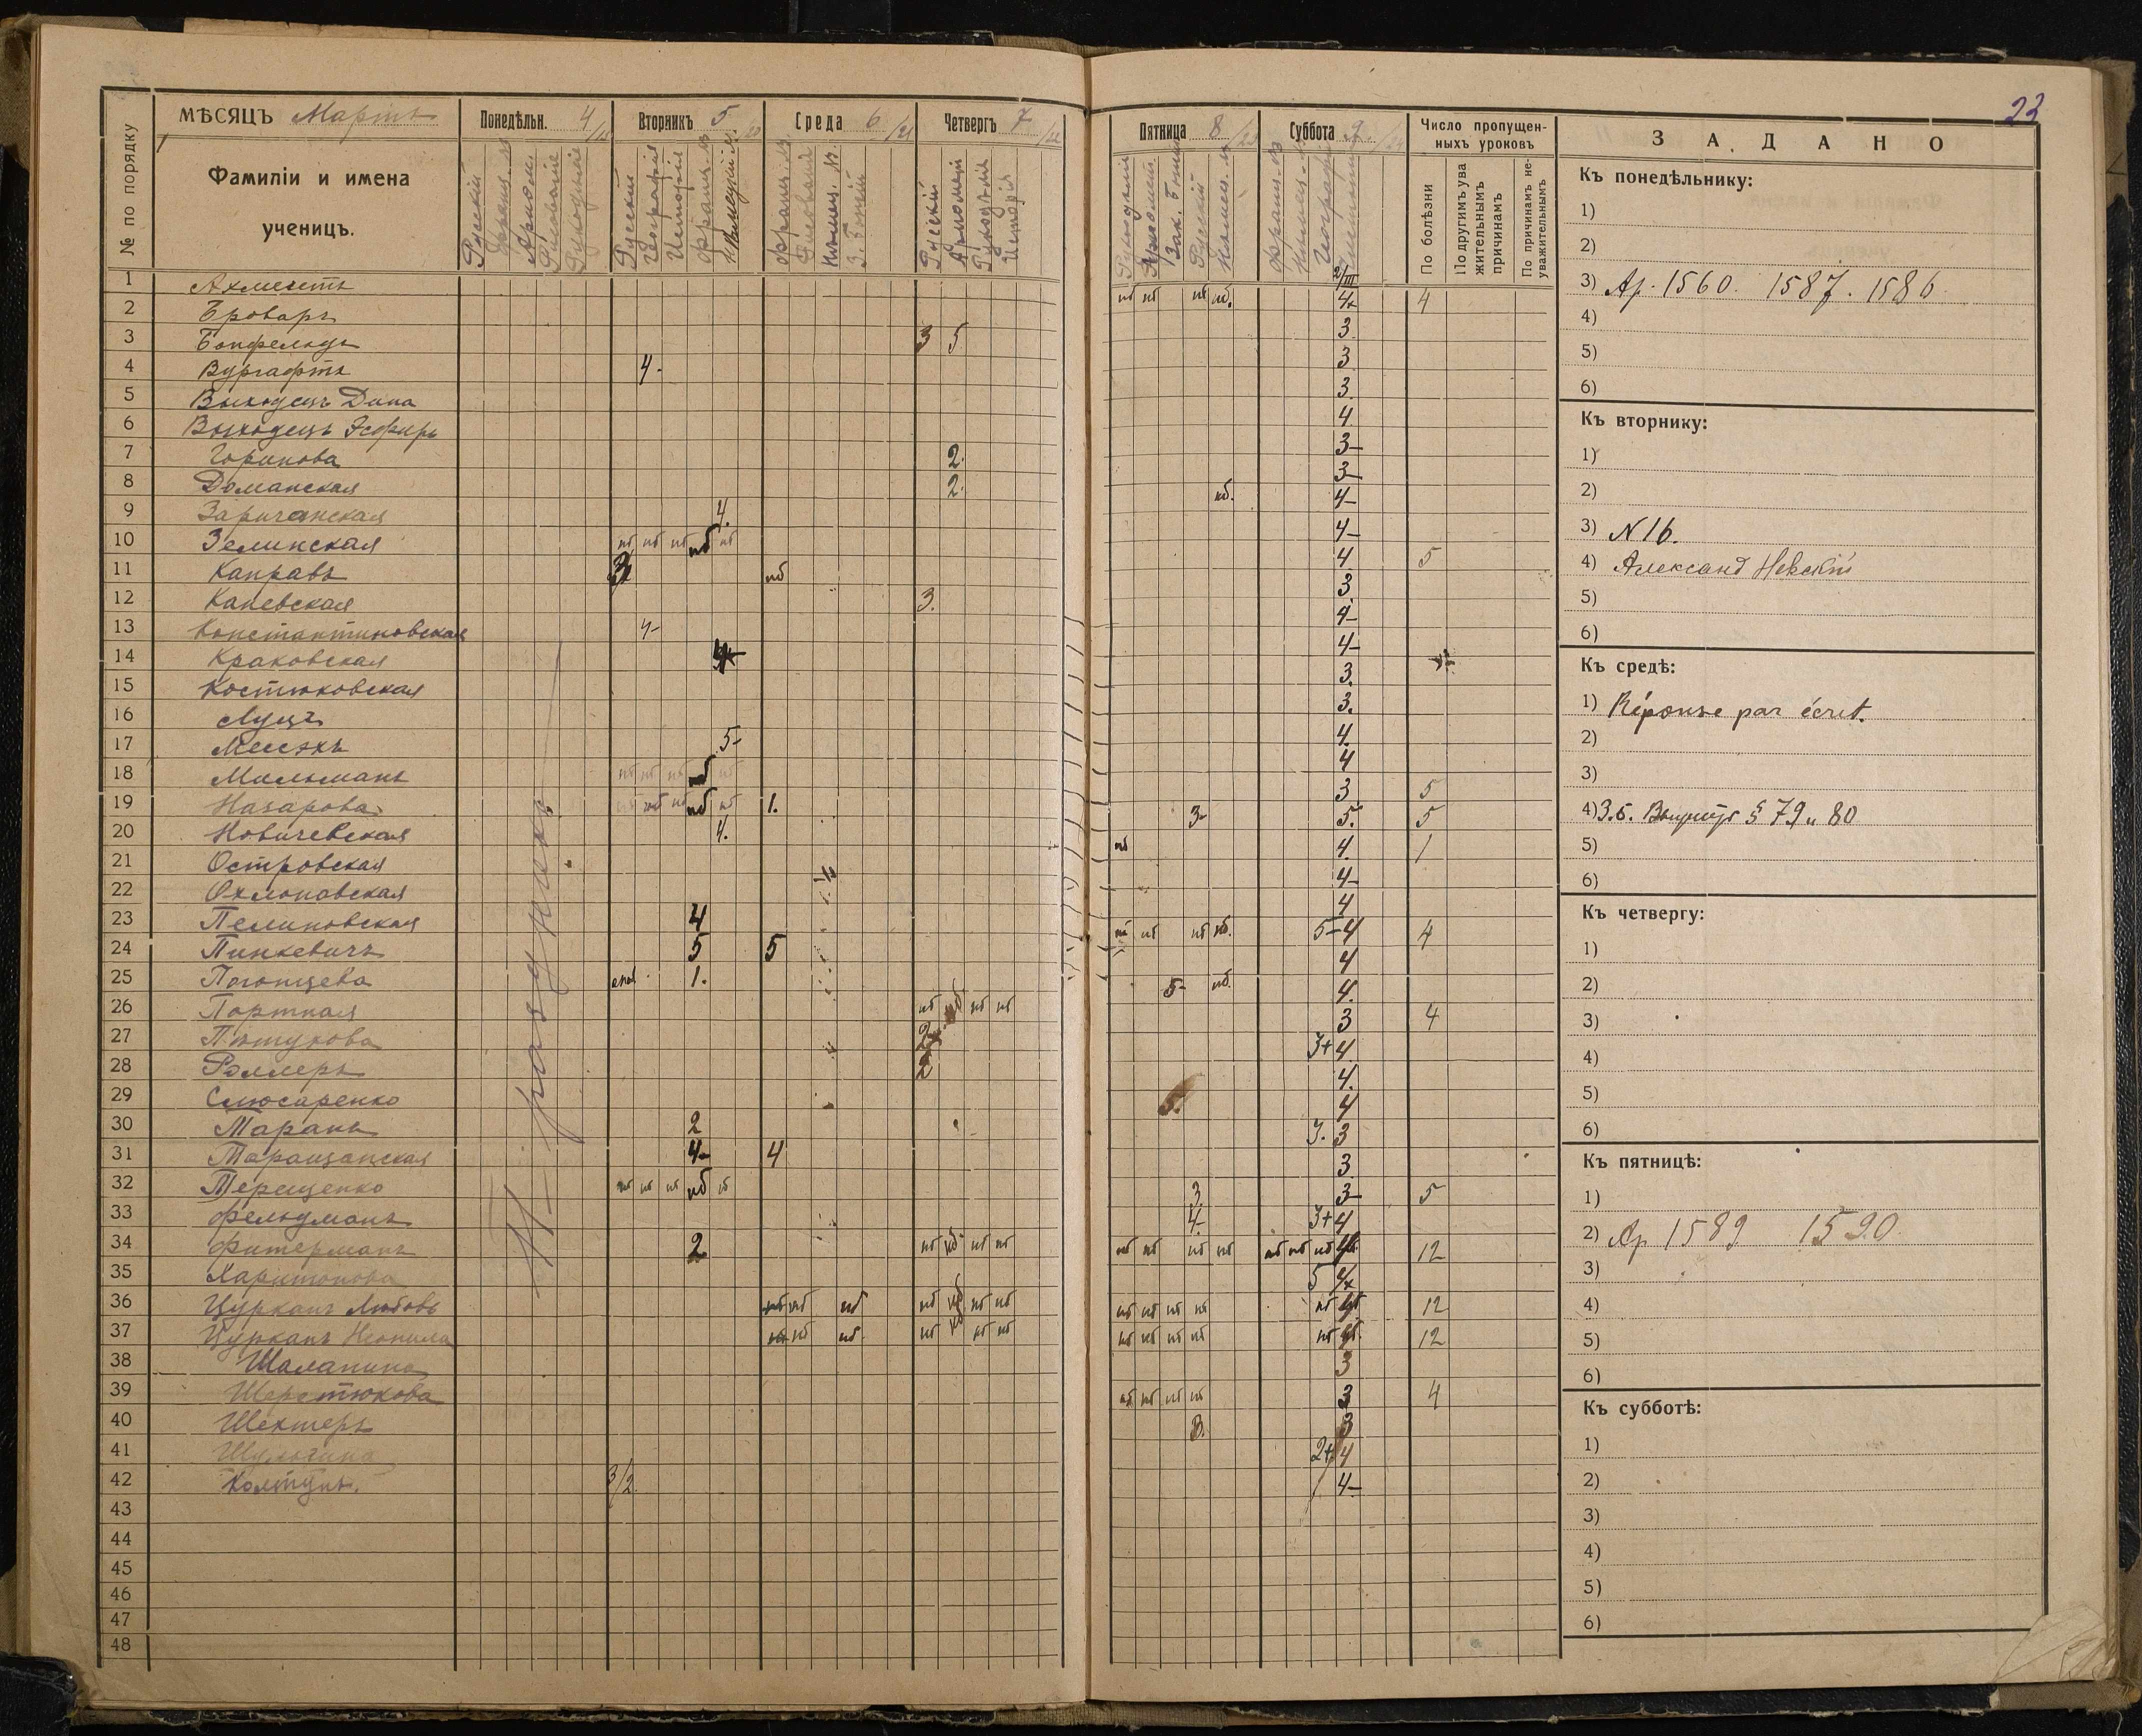 23
МѢСЯЦЪ Мартъ
№ по порядку
Фамиліи и имена
ученицъ.
Понедѣльн. 4
Вторникъ 5
Среда 6/21
Четвергъ 7/22
Русскій
Франц. яз
Ариѳм.
Рисованіе
Рукодѣліе
Русскій
Географія
Исторія
Франц. яз
Нѣмецкій я.
Франц. яз.
Рисованіе
Нѣмец. яз.
З. Божій
Русскій
Рукодѣліе
Исторія
1 Ахметъ
2 Броваръ 3 5
3 Бонфельдъ
4 Вургафтъ 4-
5 Выходецъ Дина
6 Выходецъ Эсфирь
7 Горинова 2.
8 Доманская 2.
9 Заричанская 4.
10 Зелинская нб нб нб нб нб
11 Каправъ нб
12 Каневская 3.
13 Константиновская 4-
14 Краковская
15 Костюковская
16 Луцъ
17 5-
18 Мильманъ нб нб нб нб нб
19 Назарова нб нб нб нб нб 1.
20 Новичевская 4.
21 Островская
22 Охлоповская
23 Пелиновская 4
24 Пинкевичъ 5 5
25 1.
26 Портная нб нб нб нб
27 Пѣтухова 2
28 Роллеръ 2
29 Слюсаренко
30 Таранъ 2
31 Таращанская 4- 4
32 Терещенко нб нб нб нб нб
33 Фельдманъ
34 Фитерманъ 2 нб нб нб нб
35 Харитонова
36 Цурканъ Любовь нб нб нб нб нб нб нб
37 Цурканъ Неонила нб нб нб нб нб нб нб
38 Шаланина
39 Шерстюкова
40 Шехтеръ
41 Шульгина
42 Колтунъ. 3/2
43
44
45
46
47
48
Не праздникъ
Пятница 8/23
Суббота 9/24
Число пропущен-
ныхъ уроковъ
Рукодѣліе
Ариѳмет.
Зак. Божій
Русскій
Нѣмец. я
Франц. яз
Нѣмец. яз
Географія
По болѣзни
По другимъ ува
жительнымъ
причинамъ
По причинамъ не-
уважительнымъ
2/III
нб нб нб нб. 4 4
3.
3
3.
4
3-
3-
нб. 4-
4-
4 5
3.
4-
4-
3.
3.
4.
4
3 5
3- 5. 5
нб 4. 1
4-
4
нб нб нб нб. 5- 4 4
4
5- нб. 4.
3 4
3+ 4
4.
5. 4
3. 3
3
3 3- 5
4- 3+ 4
нб нб нб нб нб нб нб 12
5 4
нб нб нб нб нб 12
нб нб нб нб нб 12
3
нб нб нб нб 3 4
3. 3
2+ 4
4-
З А Д А Н О
Къ понедѣльнику:
1)
2)
3) Ар. 1560. 1587. 1586
4)
5)
6)
Къ вторнику:
1)
2)
3) N 16.
4) Александ Невскій
5)
6)
Къ средѣ:
1) Réponse par écrit.
2)
3)
4) З.Б. § 79 и 80
5)
6)
Къ четвергу:
1)
2)
3)
4)
5)
6)
Къ пятницѣ:
1)
2) Ар 1589 1590
3)
4)
5)
6)
Къ субботѣ:
1)
2)
3)
4)
5)
6)